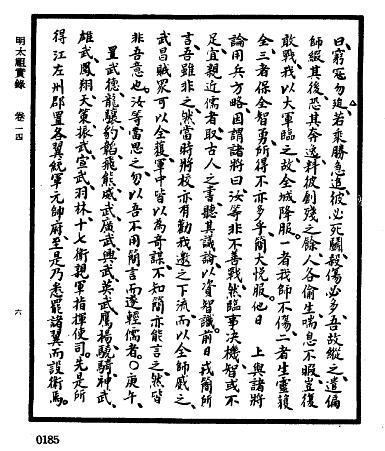 明太祖實錄 卷一四 六
曰窮寇勿追若乘勝急追彼必死鬬殺傷必多吾故縱之遣偏
師綴其後恐其奔逸料彼創殘之餘人各偷生喘息不暇豈復
敢戰我以大軍臨之故全城降服一者我師不傷二者生靈獲
全三者保全智勇所得不亦多乎簡大悅服他日 上與諸將
論用兵方略因謂諸將曰汝等非不善戰然臨事決機智或不
足宜親近儒者取古人之書聽其議論以資智識前日我簡所
言吾雖非之然當時將校亦有勸我邀之下流而以全師蹙之
武昌賊眾可以全獲軍中皆以為奇謀不知簡亦能言之然皆
非吾意也汝等當思之勿以吾不用簡言而遂輕儒者○庚午
置武德龍驤豹韜飛熊威武廣武興武英武鷹揚驍騎神武
雄武鳳翔天策振武宣武羽林十七衛親軍指揮使司先是所
得江左州郡置各翼統軍元帥府至是乃悉罷諸翼而設衛焉
0185